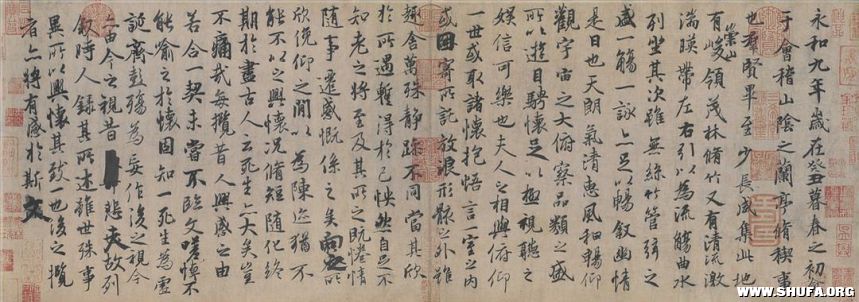 永和九年歲在癸丑暮春之初會
于會稽山陰之蘭亭脩稧事
也羣賢畢至少長咸集此地
有崇山峻領茂林脩竹又有清流激
湍暎帶左右引以為流觴曲水
列坐其次雖無絲竹管弦之
盛一觴一詠亦足以暢敘幽情
是日也天朗氣清惠風和暢仰
觀宇宙之大俯察品類之盛
所以遊目騁懷足以極視聽之
娛信可樂也夫人之相與俯仰
一世或取諸懷抱悟言一室之內
或因寄所託放浪形骸之外雖
趣舍萬殊靜躁不同當其欣
於所遇蹔得於己怏然自足不
知老之將至及其所之既惓情
隨事遷感慨係之矣向之所
欣俛仰之間以為陳迹猶不
能不以之興懷況脩短隨化終
期於盡古人云死生亦大矣豈
不痛哉每攬昔人興感之由
若合一契未嘗不臨文嗟悼不
能喻之於懷固知一死生為虛
誕齊彭殤為妄作後之視今
亦由今之視昔悲夫故列
敘時人錄其所述雖世殊事
異所以興懷其致一也後之攬
者亦將有感於斯文
WWW.SHUFA.ORG